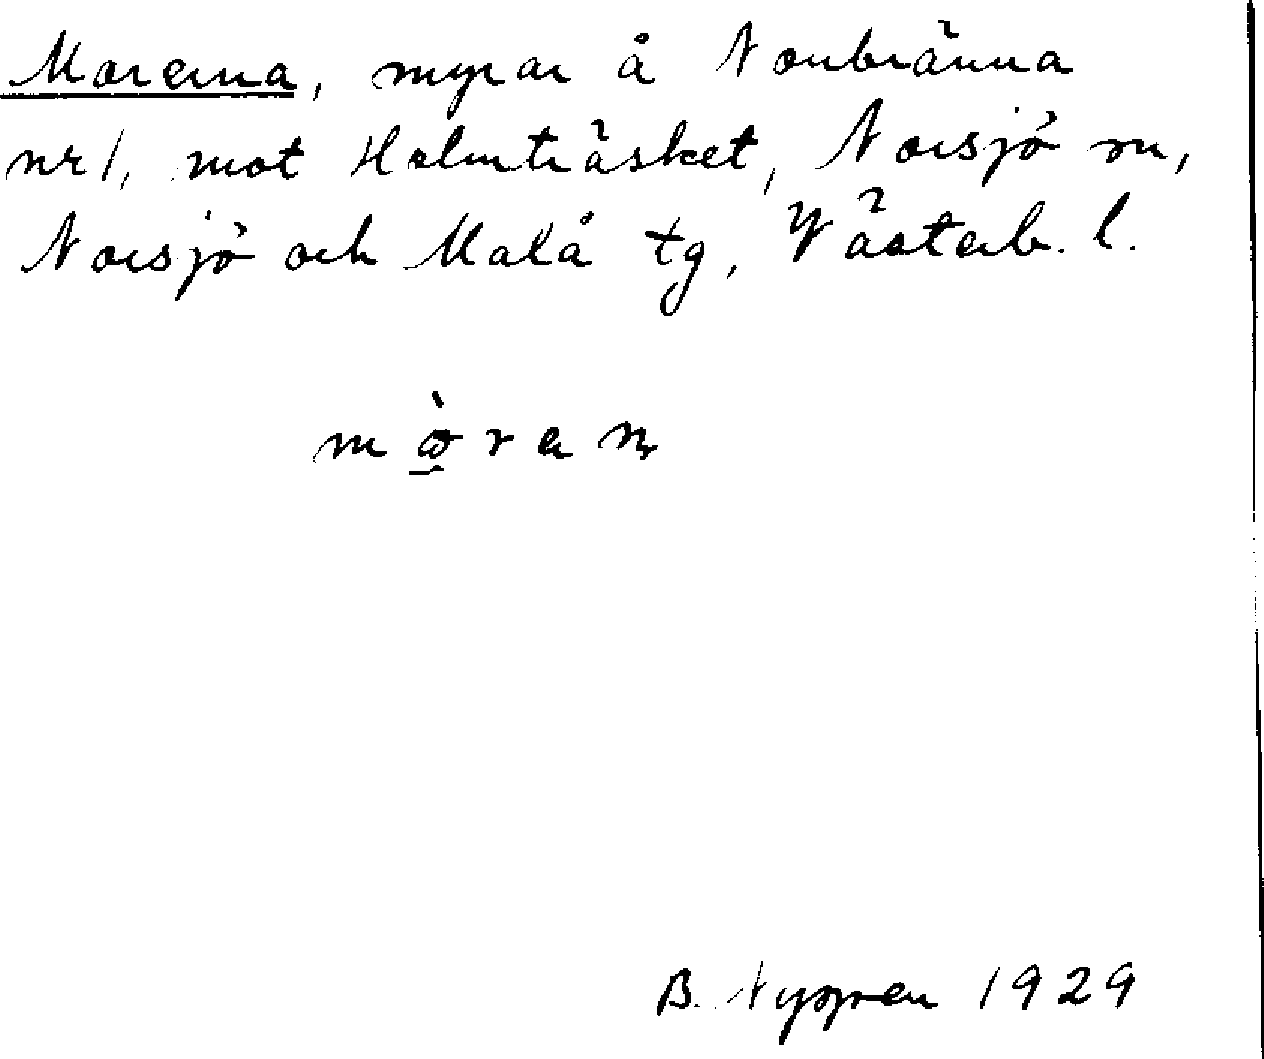 Morerna, myrar å Norrbränna
nr 1, mot Holmträsket, Norsjö sn,
Norsjö och Malå tg, Västerb. l.
B. Nygren 1929